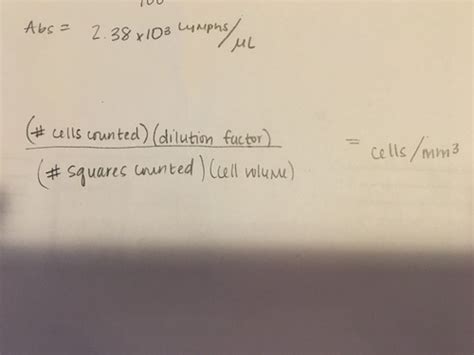 Abs = 2.38 x 10³ lymphs/µL
(# cells counted)(dilution factor)
(# squares counted)(cell volume)
= cells/mm³